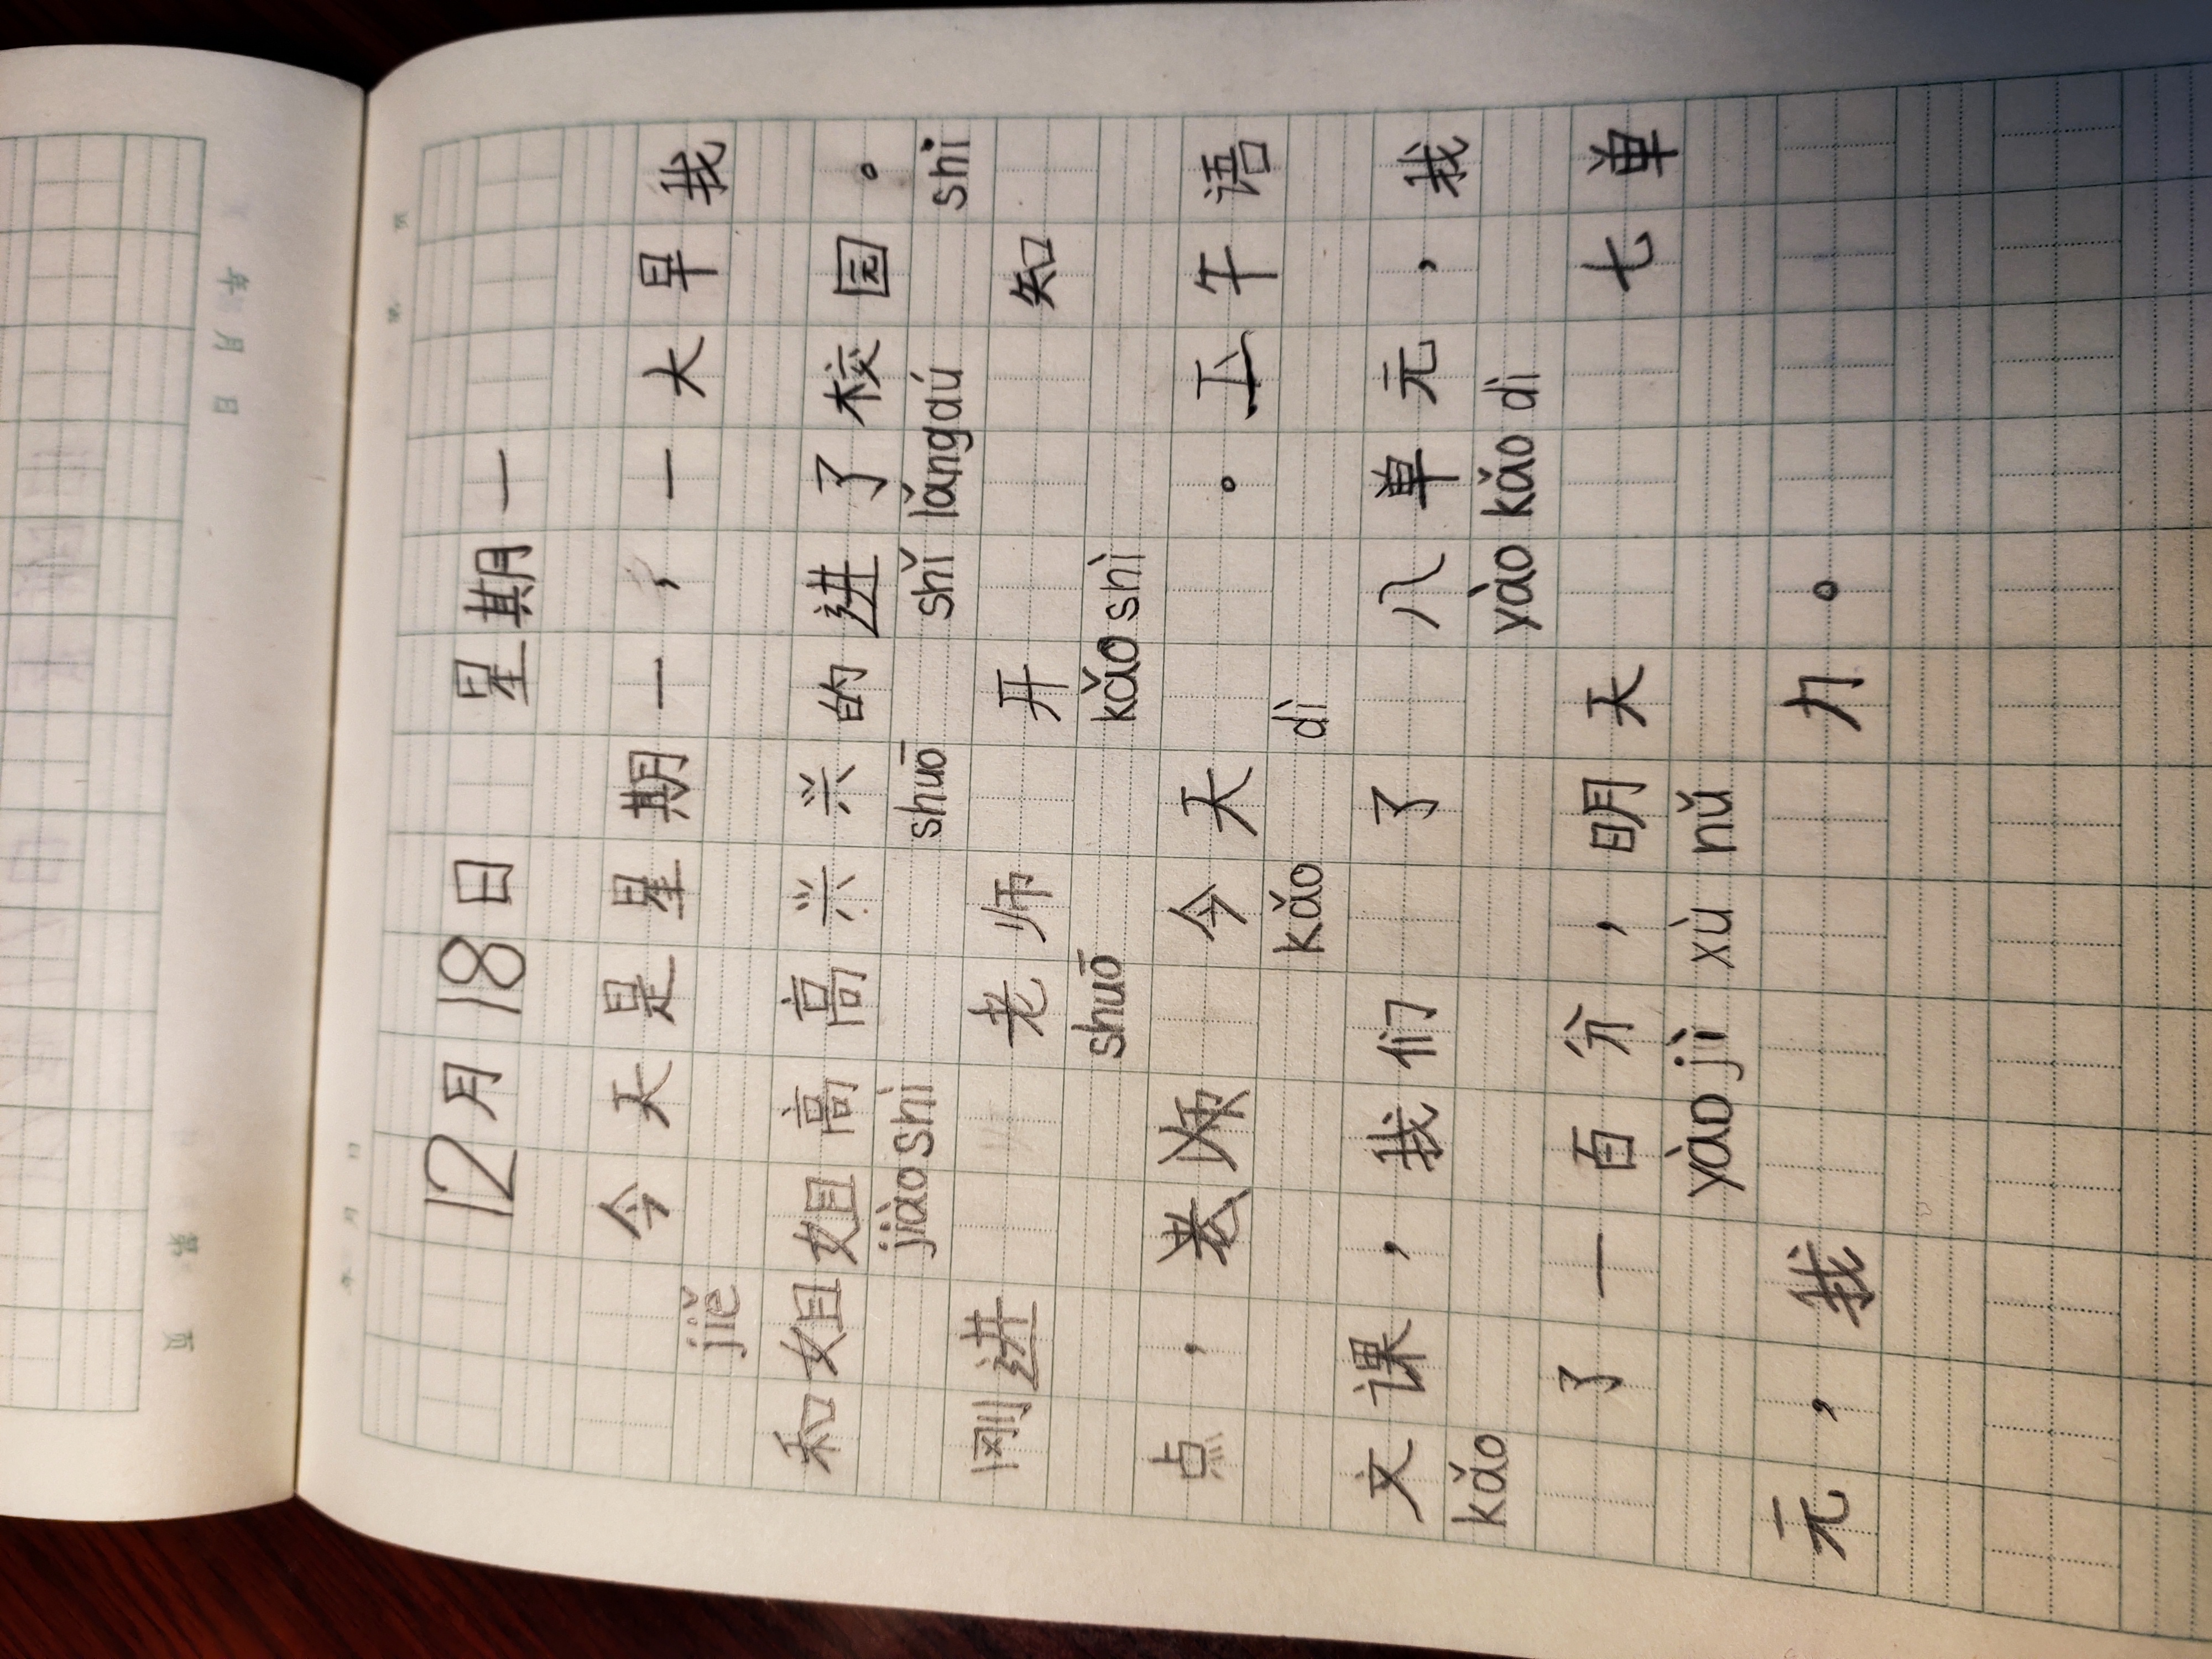 12月18日 星期一
今天是星期一，一大早我
jiě
和姐姐高高兴兴的进了校园。
jiàoshì shuō shǐ lǎngdú shi
刚进 老师 开 知
shuō kǎoshì
点，老师 今天 。上午语
kǎo dì
文课，我们 了 八单元，我
kǎo yào kǎo dì
了一百分，明天 七单
yào jì xù nǔ
元，我 力。